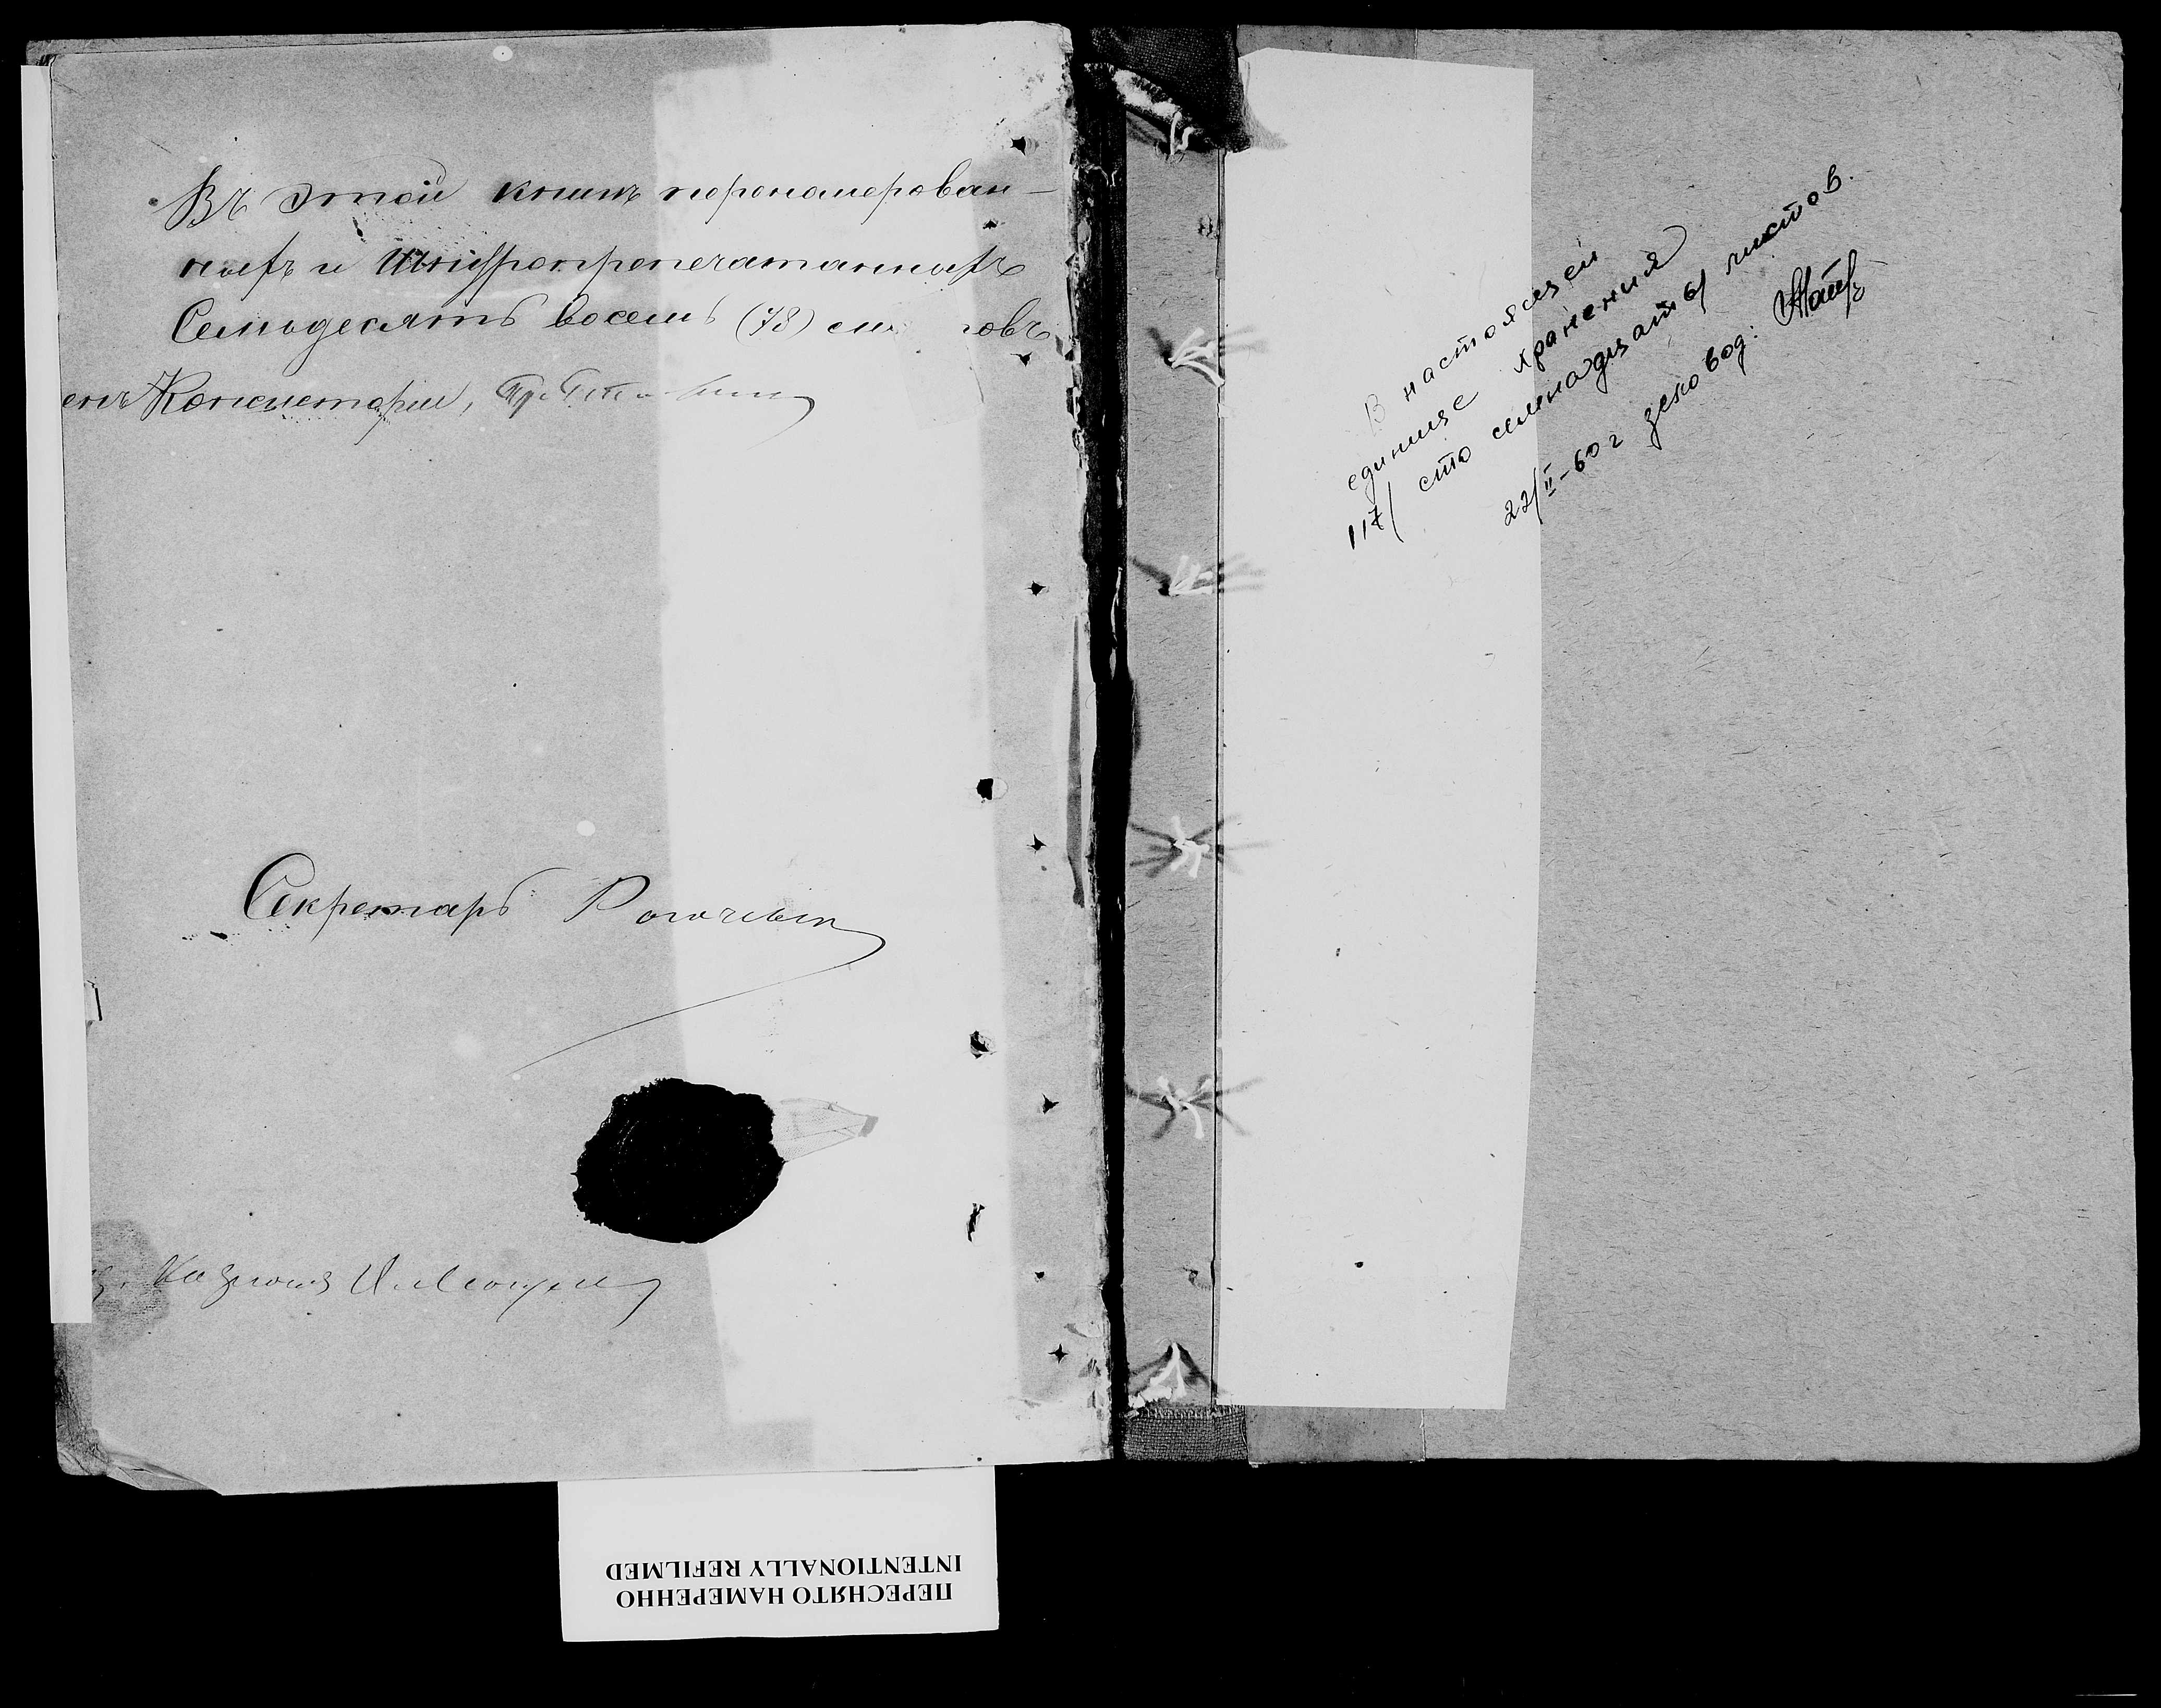 Въ этой книгѣ перономерован-
ныхъ и шнуропрепечатанныхъ
Семьдесятъ восемь (78) лис  товъ
Консисторіи,
Секретарь
В настоящей
единице хранения
117/ сто семнадцать/ листов.
22/II-60г
ПЕРЕСНЯТО НАМЕРЕННО
INTENTIONALLY REFILMED